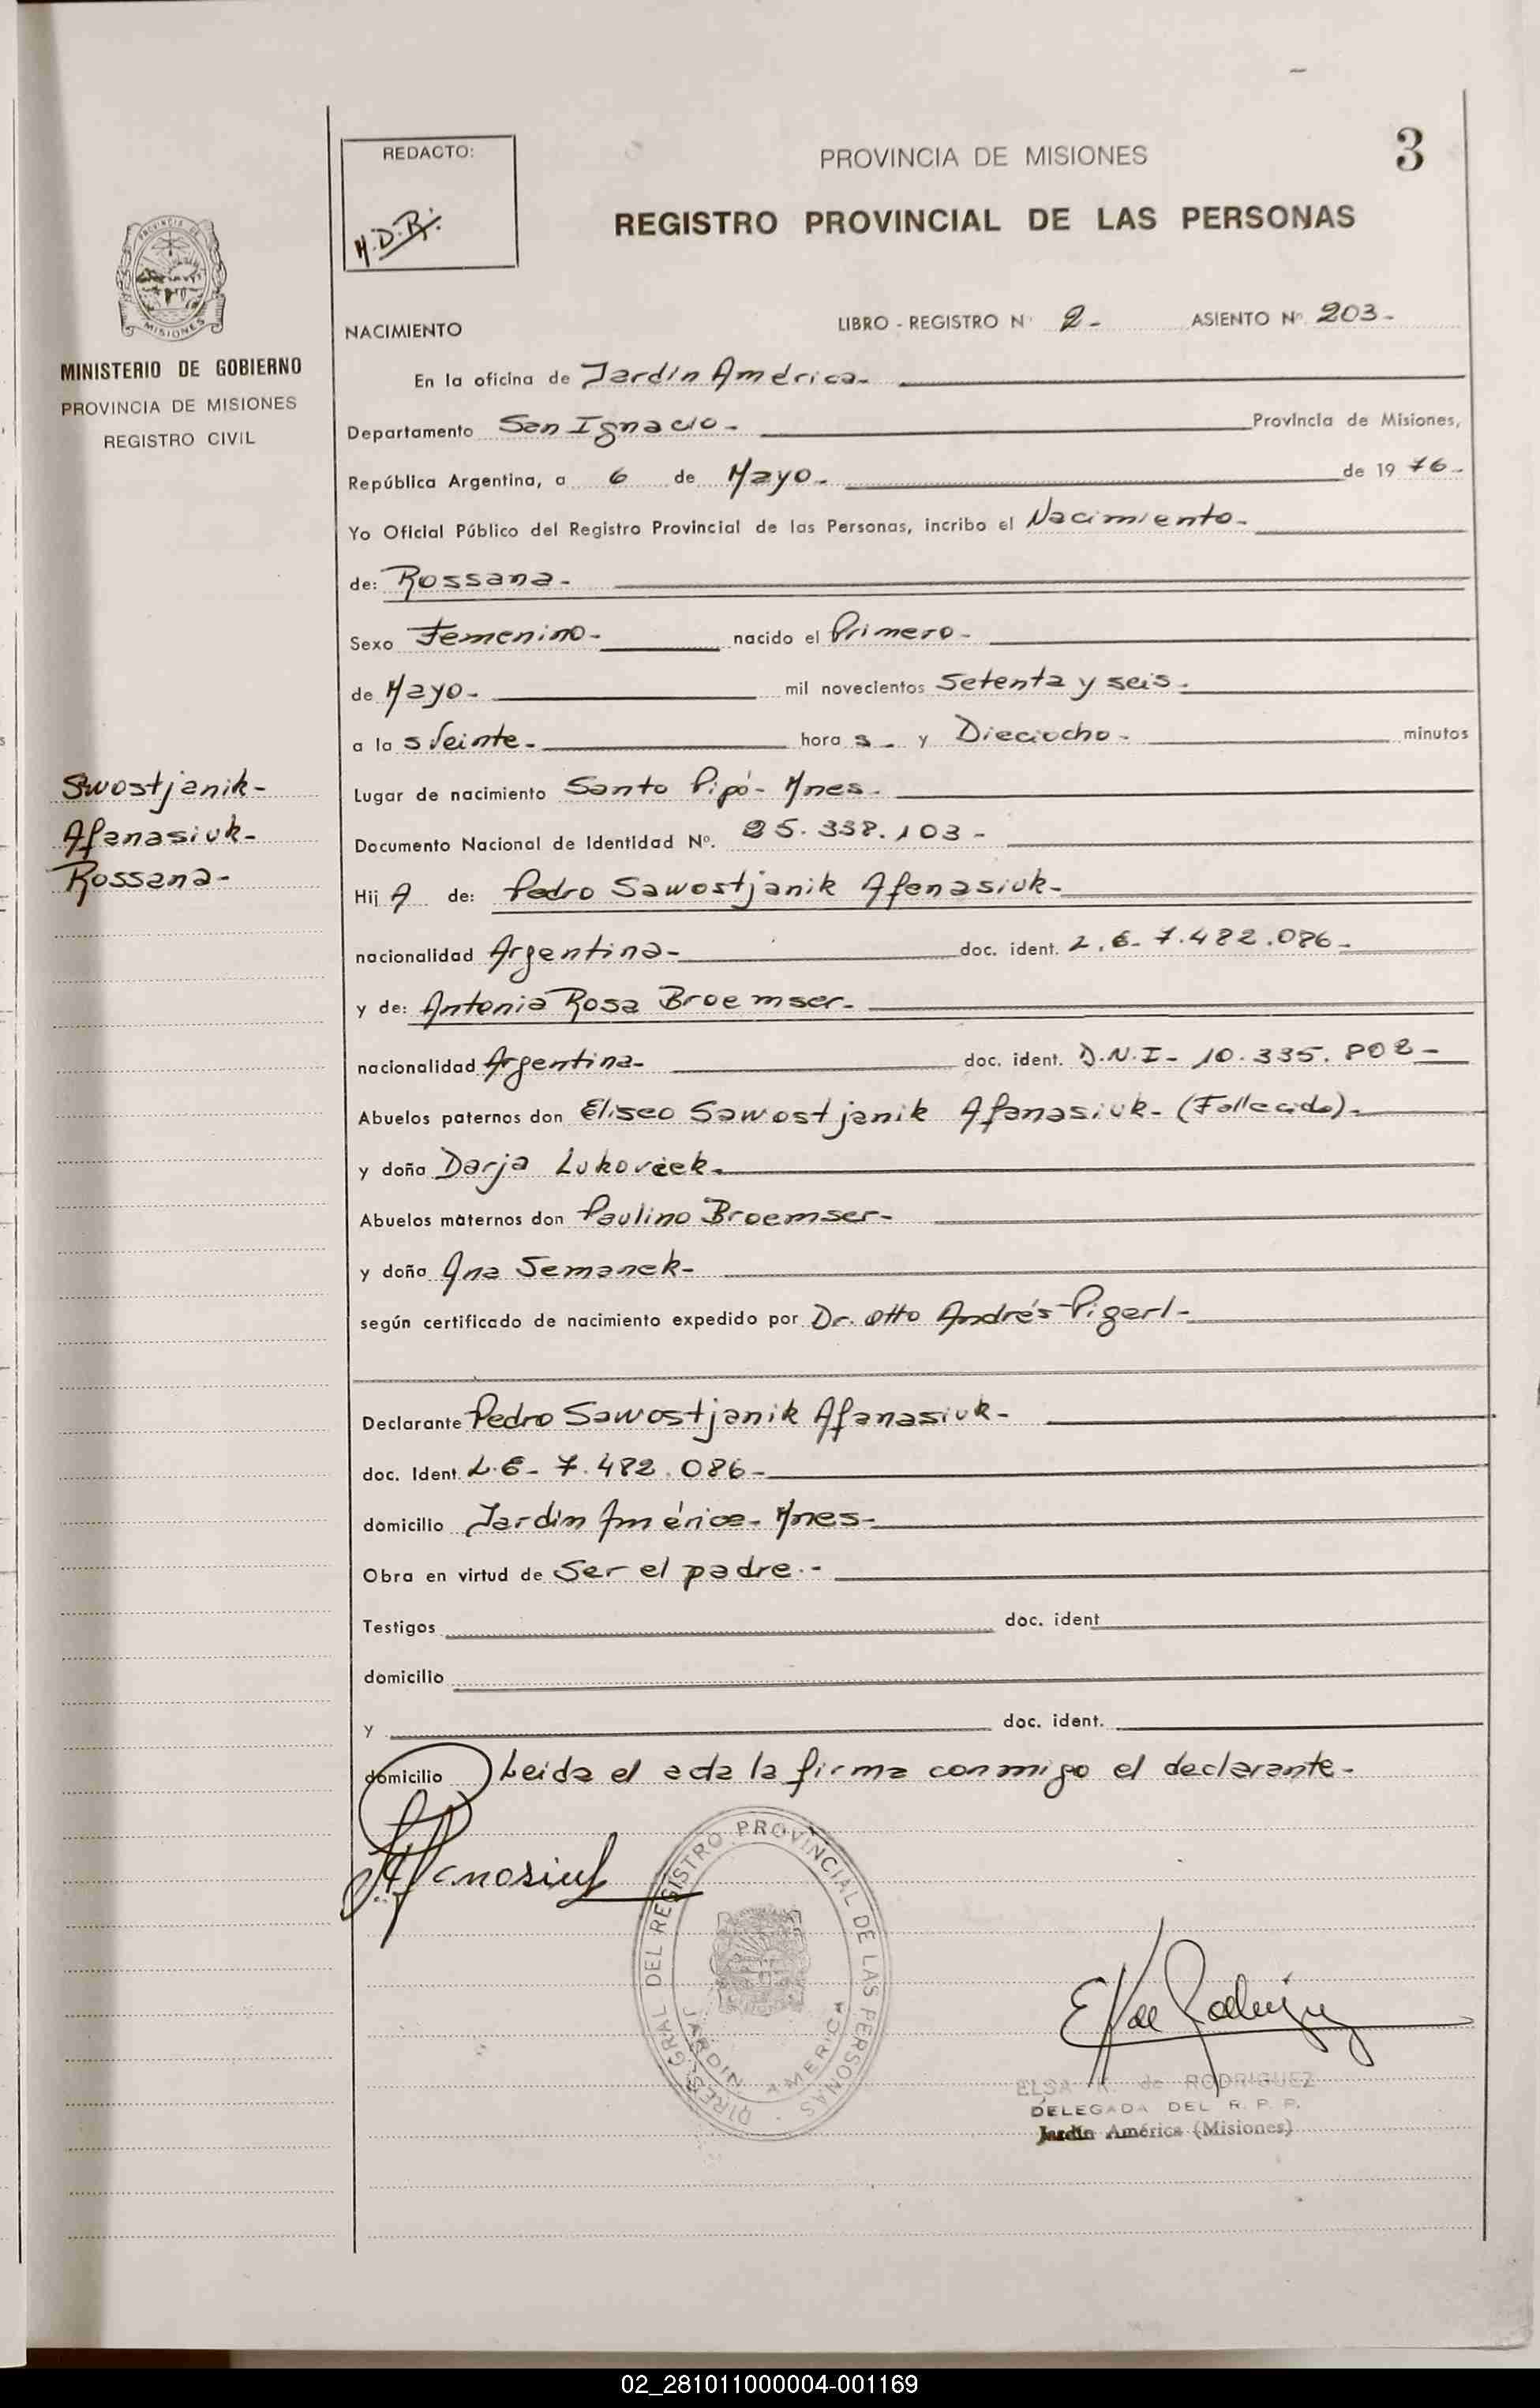 3
REDACTO:
H.D.R.
PROVINCIA DE MISIONES
REGISTRO PROVINCIAL DE LAS PERSONAS
PROVINCIA DE
MISIONES
MINISTERIO DE GOBIERNO
PROVINCIA DE MISIONES
REGISTRO CIVIL
NACIMIENTO LIBRO - REGISTRO Nº 2- ASIENTO Nº 203-
En la oficina de Jardín América-
Departamento San Ignacio- Provincia de Misiones,
República Argentina, a 6 de Mayo- de 19 76-
Yo Oficial Público del Registro Provincial de las Personas, incribo el Nacimiento-
de: Rossana-
Sexo Femenino- nacido el Primero-
de Mayo- mil novecientos Setenta y seis-
a la s Veinte- hora s- y Dieciocho- minutos
Lugar de nacimiento Santo Pipó- Mnes-
Documento Nacional de Identidad Nº. 25.338.103-
Hij A de: Pedro Sawostjanik Afanasiuk-
nacionalidad Argentina- doc. ident. L.E- 7.482.086-
y de: Antonia Rosa Broemser-
nacionalidad Argentina- doc. ident. D.N.I- 10.335.802-
Abuelos paternos don Eliseo Sawostjanik Afanasiuk- (Fallecido)-
y doña Darja
Abuelos maternos don Paulino Broemser-
y doña Ana Semanek-
según certificado de nacimiento expedido por Dr. Otto Andrés Pigerl-
Declarante Pedro Sawostjanik Afanasiuk-
doc. Ident. L.E- 7.482.086-
domicilio Jardín América- Mnes-
Obra en virtud de Ser el padre.-
Testigos doc. ident
domicilio
y doc. ident.
domicilio Leida el acta la firma conmigo el declarante-
Swostjanik-
Afanasiuk-
Rossana-
Afanasiuk
DIREC. GRAL DEL REGISTRO PROVINCIAL DE LAS PERSONAS
JARDIN AMERICA
E K de Rodriguez
ELSA K. de RODRIGUEZ
DELEGADA DEL R. P. P.
Jardín América (Misiones)
02_281011000004-001169